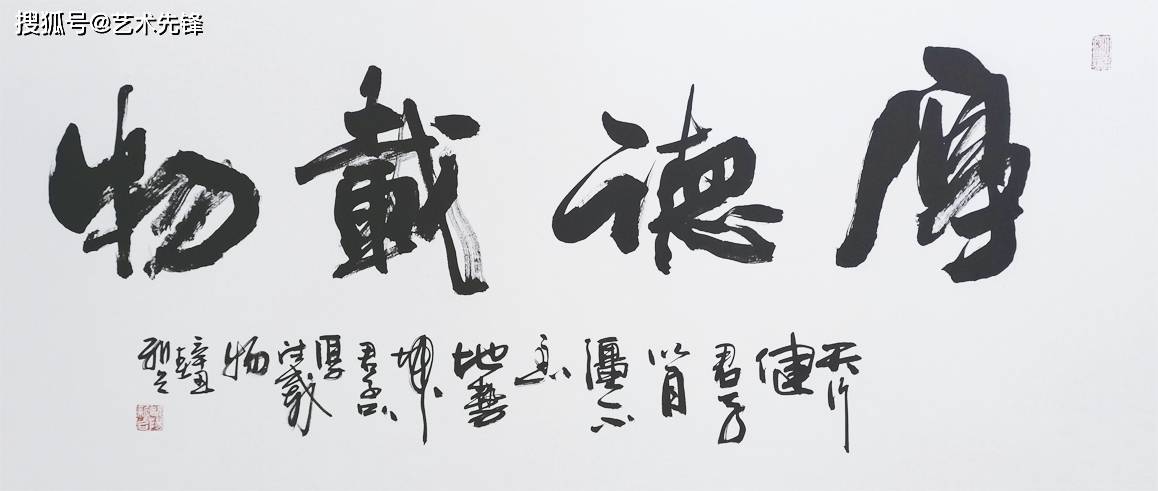 搜狐号@艺术先锋
厚德載物
天行
健
君子
以自
彊不
息
地勢
坤
君子以
厚
德載
物